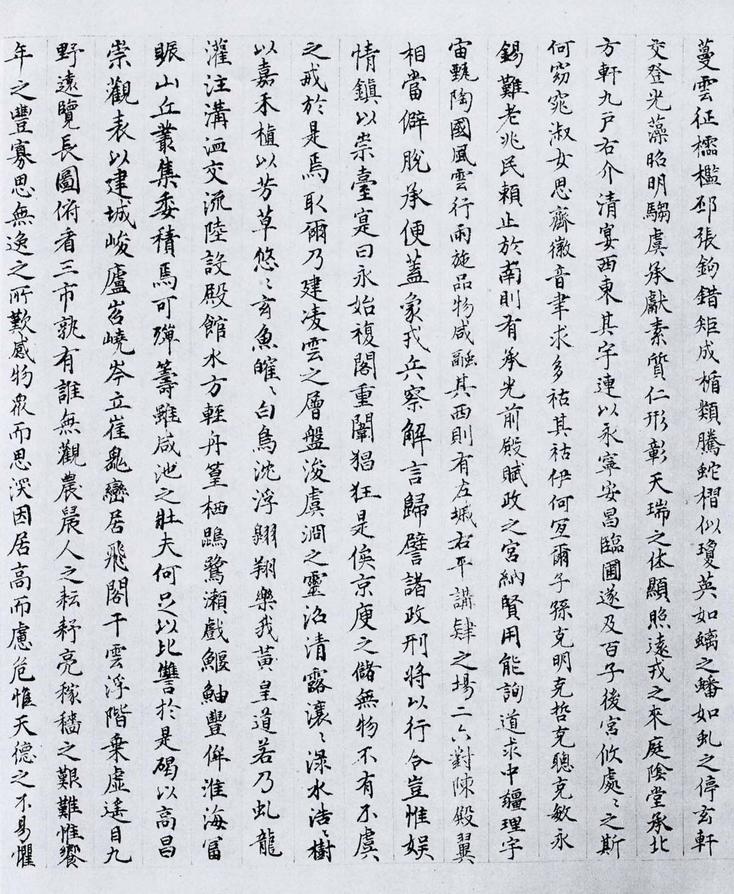 蔓雲征櫺檻邳張鉤錯矩成楯類騰蛇槢似瓊英如螭之蟠如虬之停玄軒
交登光藻昭明騶虞承獻素質仁形彰天瑞之休顯照遠戎之來庭陰堂承北
方軒九戶右介清宴西東其宇連以永寧安昌臨圃遂及百子後宮攸處々之斯
何窈窕淑女思齊徽音聿求多祜其祜伊何宜爾子孫克明克哲克聰克敏永
錫難老兆民賴止於南則有承光前殿賦政之宮納賢用能詢道求中疆理宇
宙甄陶國風雲行雨施品物咸融其西則有左墄右平講肄之場二六對陳殿翼
相當僻脫承便蓋象戎兵察解言歸譬諸政刑將以行令豈惟娛
情鎮以崇臺寔曰永始複閣重闈猖狂是俟京庾之儲無物不有不虞
之戒於是焉取爾乃建凌雲之層盤浚虞淵之靈沼清露瀼々淥水浩々樹
以嘉禾植以芳草悠々玄魚皠々白鳥沈浮翱翔樂我黃皇道若乃虬龍
灌注溝洫交流陸設殿館水方輕舟篁栖鵾鷺瀨戲鰋鮋豐侔淮海富
賑山丘叢集委積焉可殫籌雖咸池之壯夫何足以比讐於是碣以高昌
崇觀表以建城峻廬岧嶢岑立崔嵬巒居飛閣干雲浮階乘虛遙目九
野遠覽長圖俯看三市孰有誰無觀農人之耘耔亮稼穡之艱難惟饗
年之豐寡思無逸之所歎感物眾而思深因居高而慮危惟天德之不易懼